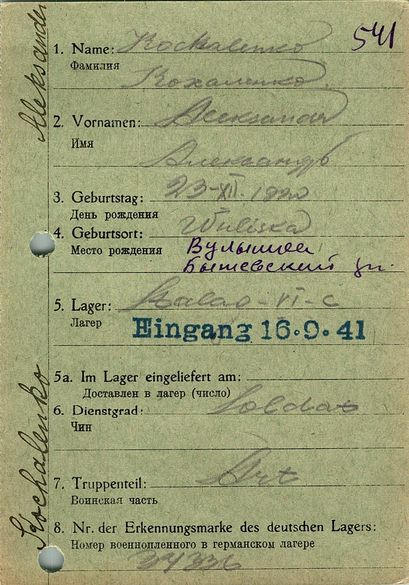 541
1. Name: Kochalenko
Фамилия Кохаленко
2. Vornamen: Aleksandr
Имя Александръ
3. Geburtstag: 23-XII. 1920
День рождения
4. Geburtsort: Wuliska
Место рождения
Бышевский
5. Lager: Stalag-VI-C
Лагер
Eingang 16.9.41
5a. Im Lager eingeliefert am:
Доставлен в лагер (число)
6. Dienstgrad: Soldat
Чин
7. Truppenteil: Art
Воинская часть
8. Nr. der Erkennungsmarke des deutschen Lagers:
Номер военнопленного в германском лагере
Kochalenko Aleksander